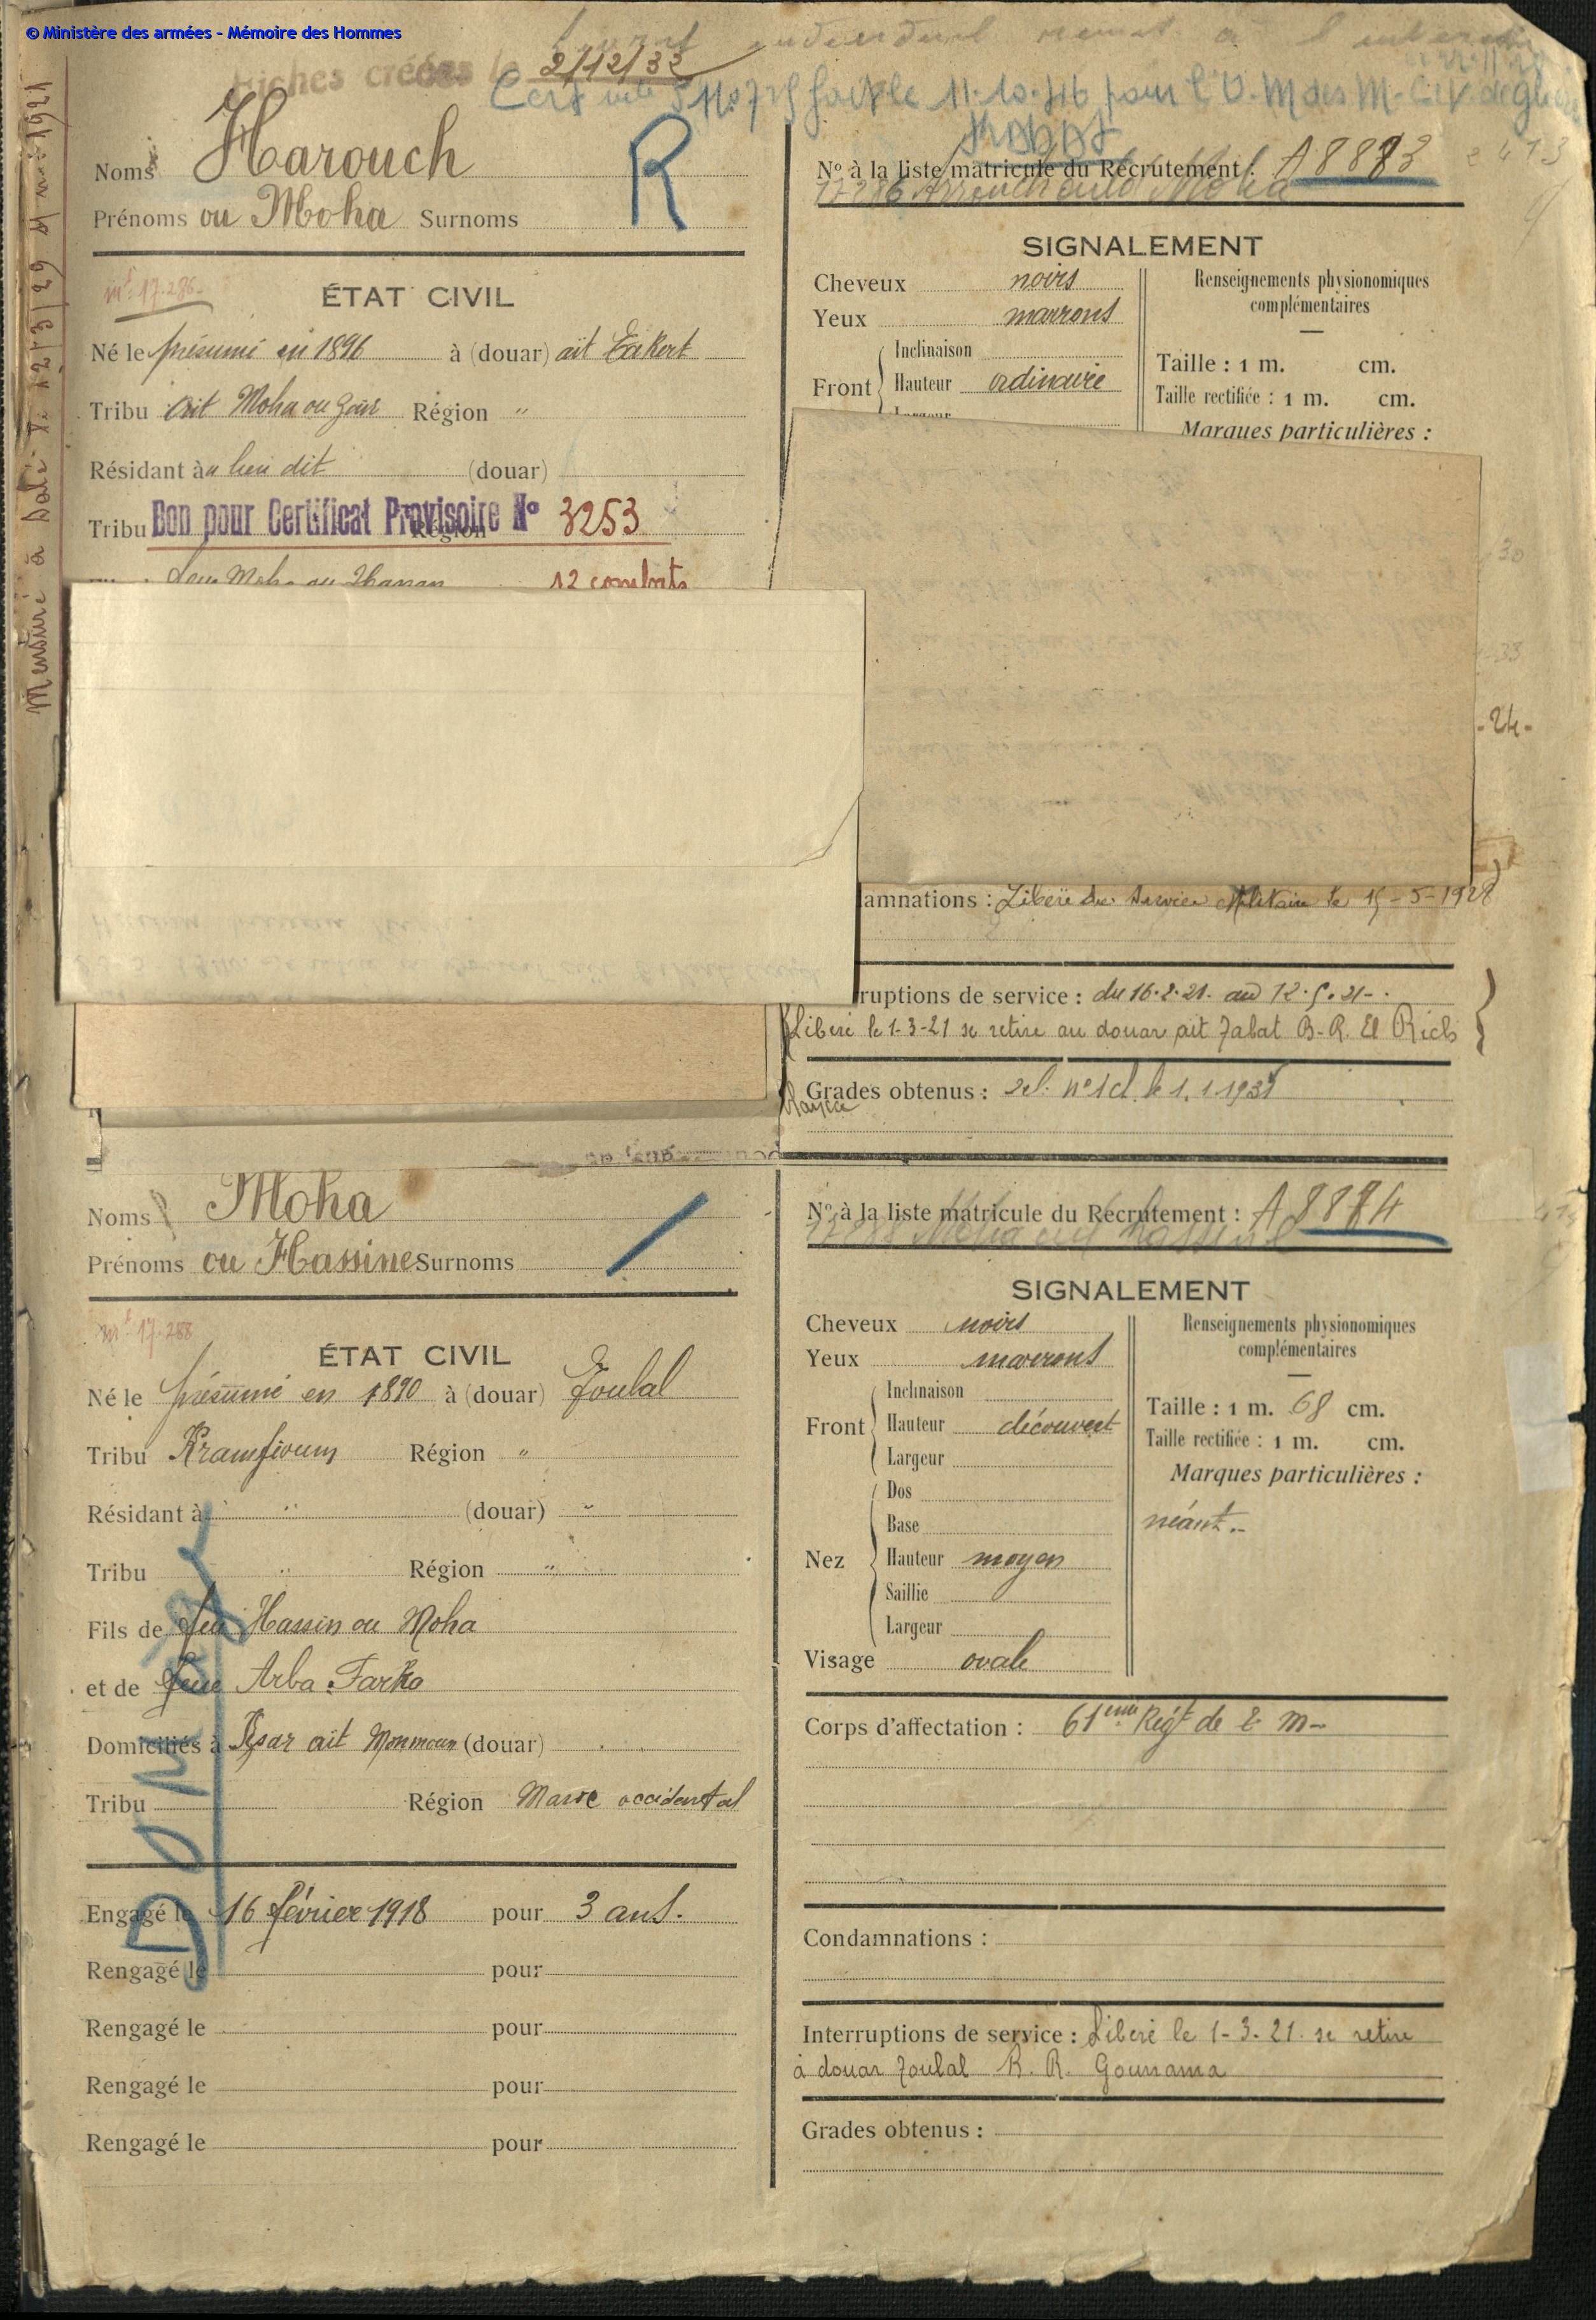 © Ministère des armées - Mémoire des Hommes
Fiches créées le 2/12/33
11.10.46 pour
Noms Harouch
Prénoms ou Moha Surnoms
R
Mle 17.286
ÉTAT CIVIL
Né le présumé en 1896 à (douar) ait
Tribu ait Moha ou Région "
Résidant à au lieu dit (douar)
Tribu Bon pour Certificat Provisoire N° 3253
Région
12 combats
N° à la liste matricule du Recrutement : A 8883
17286 ould Moha
SIGNALEMENT
Cheveux noirs
Yeux marrons
Front
Inclinaison
Hauteur ordinaire
Largeur
Renseignements physionomiques
complémentaires
Taille : 1 m. cm.
Taille rectifiée : 1 m. cm.
Marques particulières :
-24-
amnations : Libéré du Service Militaire le 15-5-1928
ruptions de service : du 16.2.21. au 12.5.21-.
Libéré le 1-3-21 se retire au douar ait Zabat B.R. El Rich
Grades obtenus :
Noms Moha
Prénoms ou Hassine Surnoms
Mle 17.288
ÉTAT CIVIL
Né le présumé en 1890 à (douar) Zoulal
Tribu Région "
Résidant à " (douar) "
Tribu " Région "
Fils de feu Hassin ou Moha
et de feue Arba Farko
Domiciliés à Ksar ait Monmoun (douar)
Tribu Région Maroc occidental
Engagé le 16 février 1918 pour 3 ans.
Rengagé le pour
Rengagé le pour
Rengagé le pour
Rengagé le pour
N° à la liste matricule du Recrutement : A 8884
17288 Moha ou Hassine
SIGNALEMENT
Cheveux noirs
Yeux marrons
Front
Inclinaison
Hauteur découvert
Largeur
Nez
Dos
Base
Hauteur moyen
Saillie
Largeur
Visage ovale
Renseignements physionomiques
complémentaires
Taille : 1 m. 68 cm.
Taille rectifiée : 1 m. cm.
Marques particulières :
néant.-
Corps d'affectation : 61ème Régt de T. M-
Condamnations :
Interruptions de service : Libéré le 1-3-21. se retire
à douar Zoulal B. R. Gourrama
Grades obtenus :